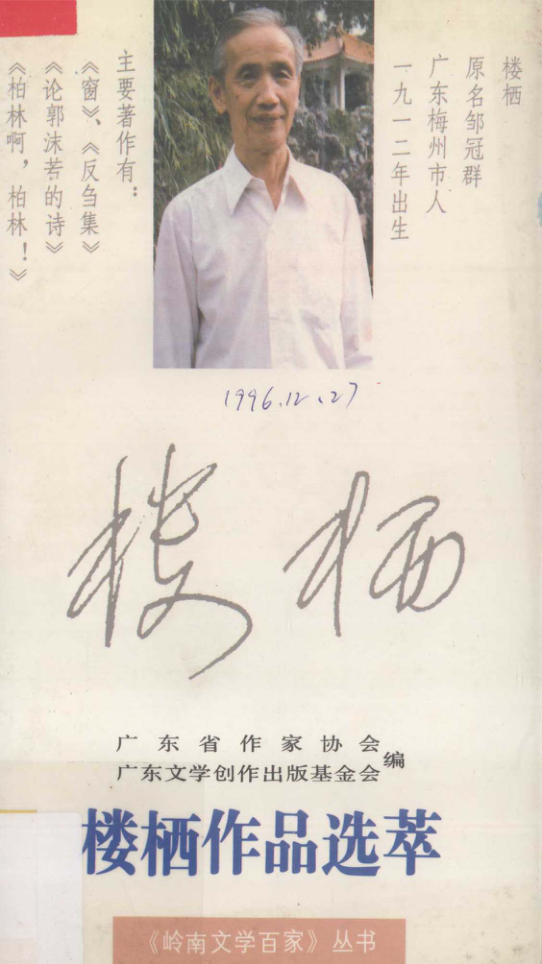 楼栖
原名邹冠群
广东梅州市人
一九一二年出生
主要著作有：
《窗》、《反刍集》
《论郭沫若的诗》
《柏林啊，柏林！》
1996.12.27
楼栖
广东省作家协会
广东文学创作出版基金会
编
楼栖作品选萃
《岭南文学百家》丛书